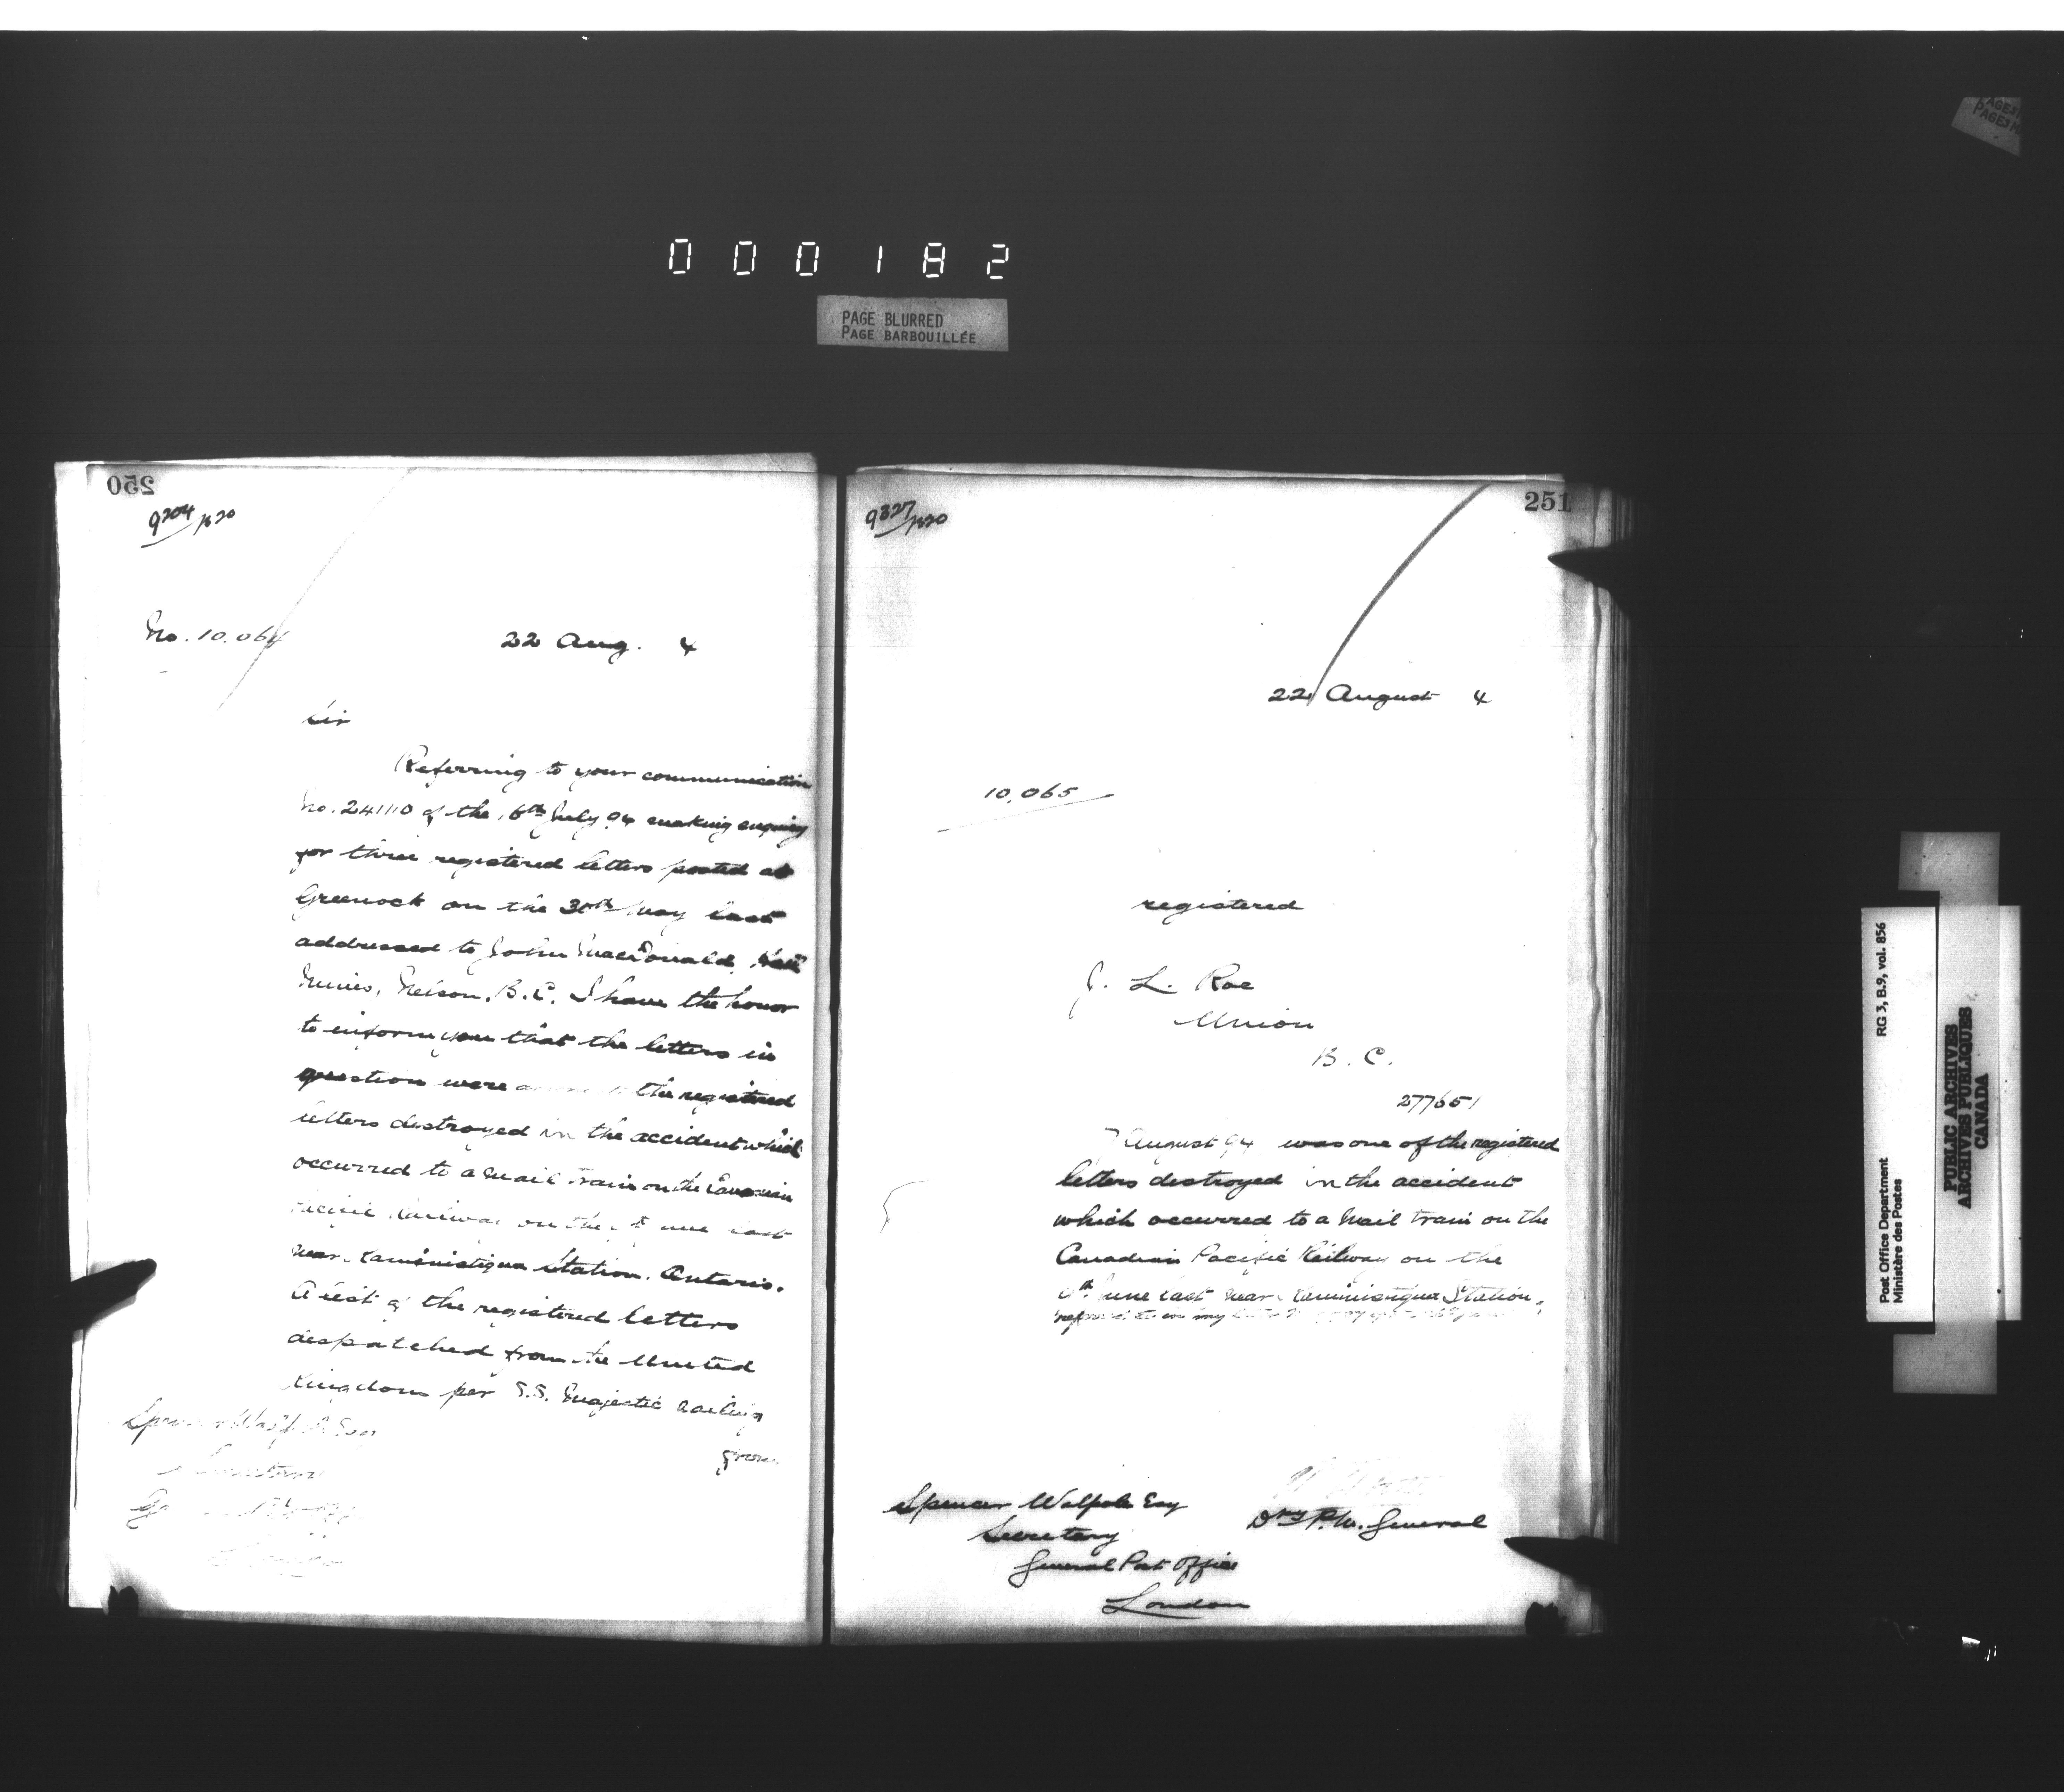 000182
PAGE BLURRED
PAGE BARBOUILLÉE
250
9204/1320
No. 10.064
22 Aug. 4
Sir
Referring to your communication
No. 241110 of the 16th July 94 making enquiry
for three registered letters posted at
Greenock on the 30th May last
addressed to John MacDonald,
Mines, Nelson, B.C. I have the honor
to inform you that the letters in
question were the registered
letters destroyed in the accident which
occurred to a Mail train on the Canadian
Pacific Railway on the June last
near Kaministiqua Station, Ontario.
A list of the registered letters
despatched from the United
Kingdom per S.S. Majestic sailing
from
Spencer Walpole Esq
Secretary
251
9327/1320
22 August 4
10.065
registered
J. L. Rae
Union
B. C.
277651
7 August 94 was one of the registered
letters destroyed in the accident
which occurred to a Mail train on the
Canadian Pacific Railway on the
June last near Kaministiqua Station,
referred to in my letter
Spencer Walpole Esq
Secretary
General Post Office
London
Dty P.M. General
Post Office Department
Ministère des Postes
RG 3, B.9, vol. 856
PUBLIC ARCHIVES
ARCHIVES PUBLIQUES
CANADA